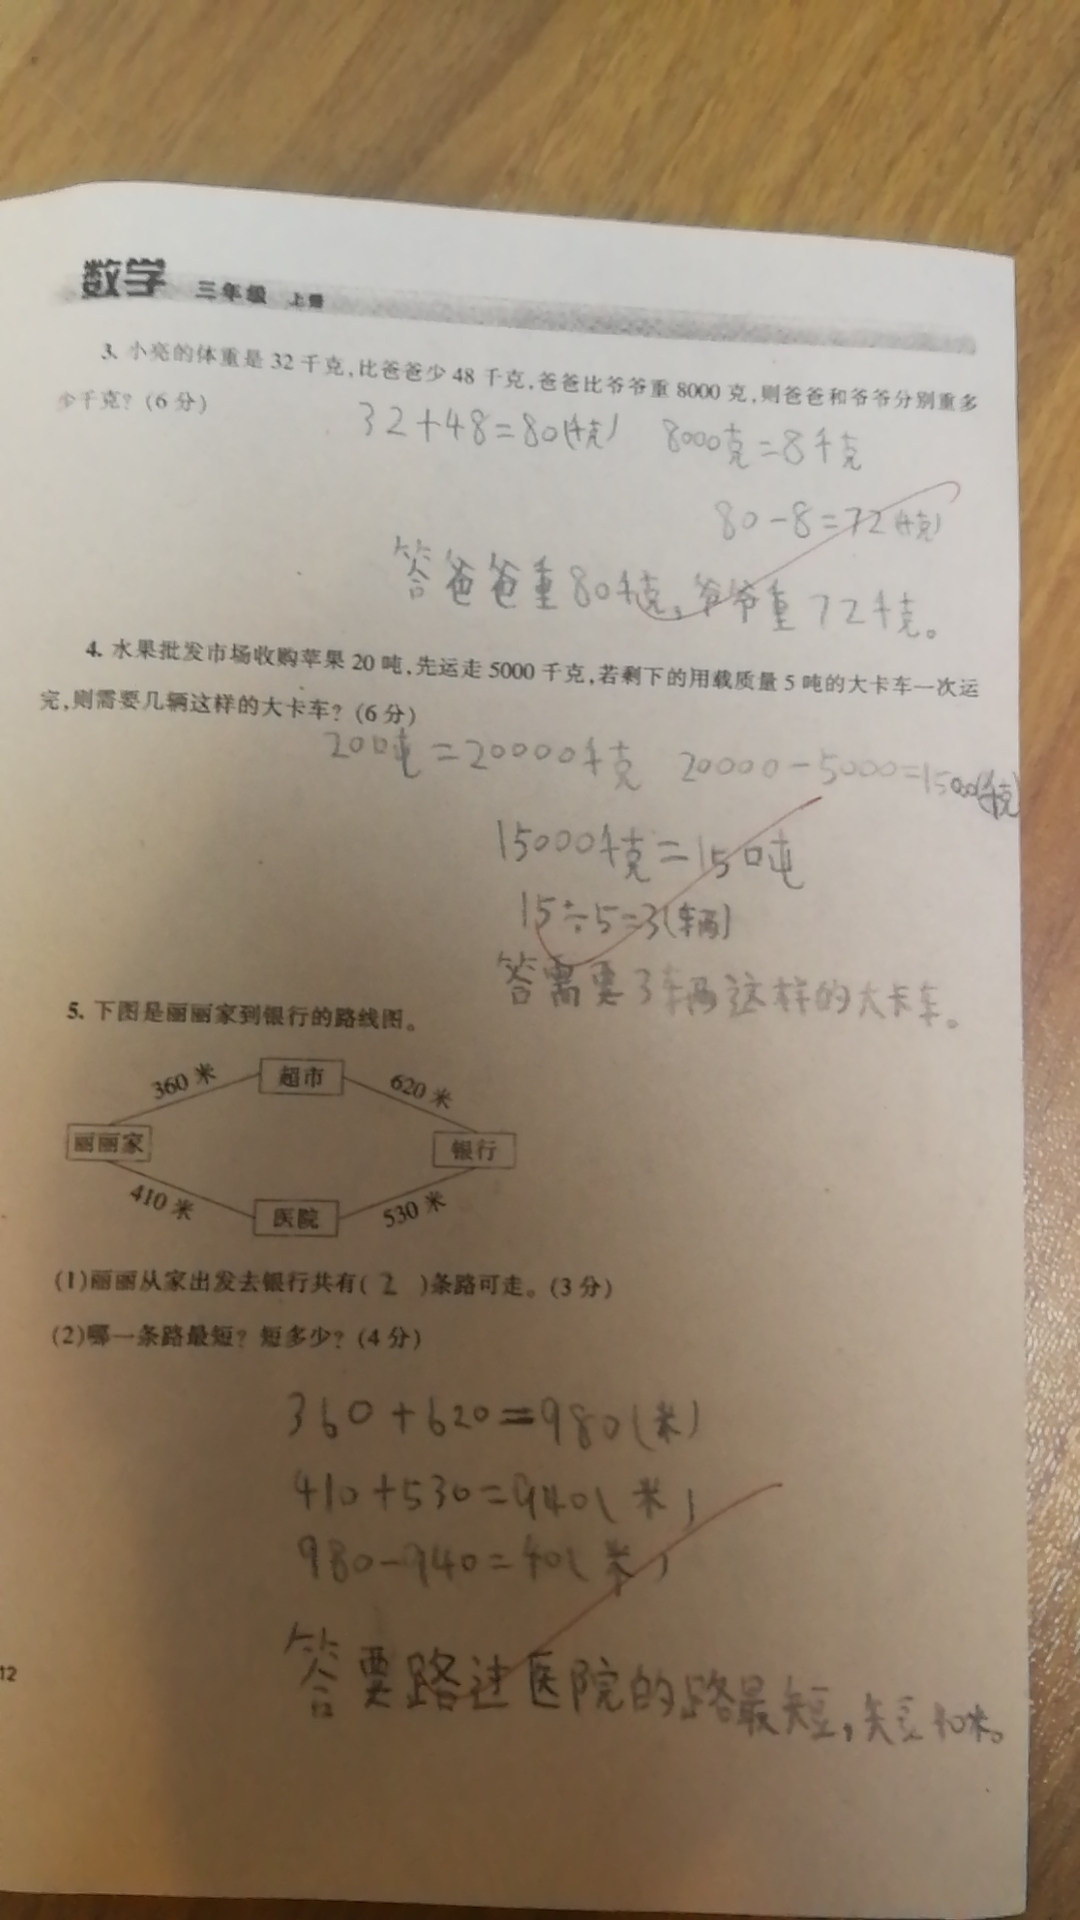 数学 三年级 上册
3. 小亮的体重是 32 千克,比爸爸少 48 千克,爸爸比爷爷重 8000 克,则爸爸和爷爷分别重多
少千克? (6 分)
32+48=80(千克) 8000克=8千克
80-8=72(千克)
答爸爸重80千克,爷爷重72千克。
4. 水果批发市场收购苹果 20 吨,先运走 5000 千克,若剩下的用载质量 5 吨的大卡车一次运
完,则需要几辆这样的大卡车? (6 分)
20吨=20000千克 20000-5000=15000(千克)
15000千克=15吨
15÷5=3(辆)
答需要3辆这样的大卡车。
5. 下图是丽丽家到银行的路线图。
360 米 超市 620 米
丽丽家 银行
410 米 医院 530 米
(1)丽丽从家出发去银行共有( 2 )条路可走。(3 分)
(2)哪一条路最短? 短多少? (4 分)
360+620=980(米)
410+530=940(米)
980-940=40(米)
答要路过医院的路最短,短40米。
12